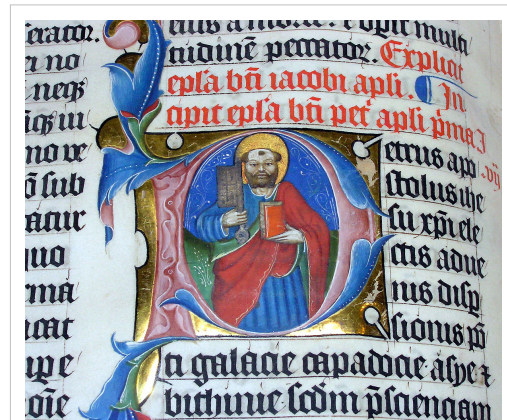 erator.
neqꝫ
mo ve
ō sub
atur
uo
rma
icat
up e
oīe
eius a morte. ⁊ opit multi
tudinē peccator. Explicit
epl'a bt̄i iacobi apl̄i. ¶ In
cipit epl'a bt̄i pet' apl̄i p̄ma
Petrus apo
stolus ihe
su xp̄i ele
ctis adue
nis disp
sionis pō
ti galacie capadocie asye ⁊
bithinie scd̄m p̄sciencam